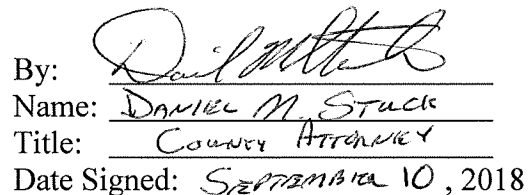 By:
Name: DANIEL M. STUCK
Title: COUNTY ATTORNEY
Date Signed: SEPTEMBER 10, 2018